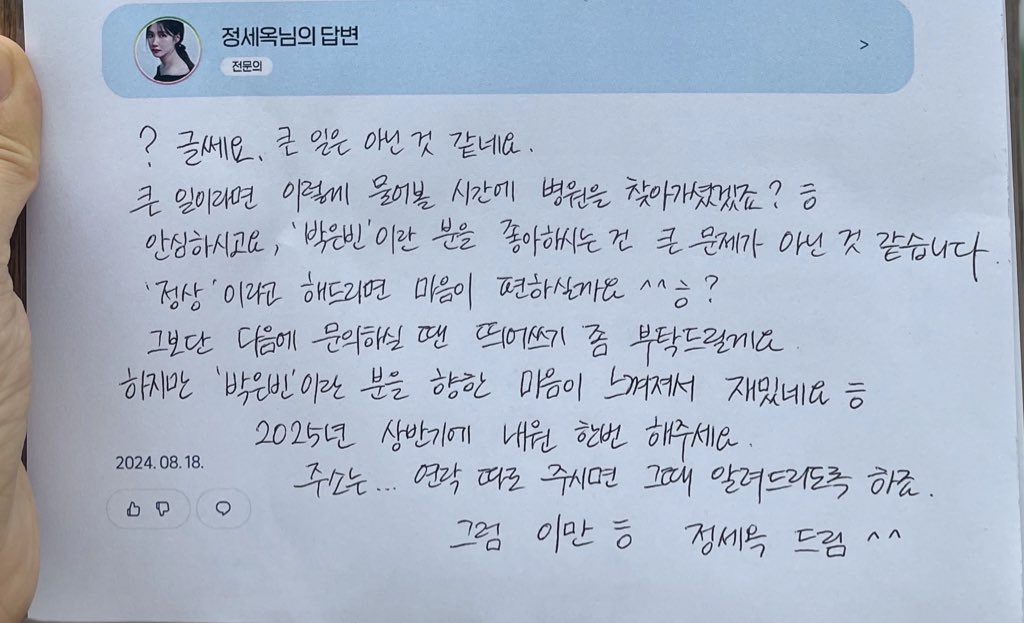 정세옥님의 답변
전문의
>
? 글쎄요. 큰 일은 아닌 것 같네요.
큰 일이라면 이렇게 물어볼 시간에 병원을 찾아가셨겠죠? ㅎ
안심하시고요, '박은빈'이란 분을 좋아하시는 건 큰 문제가 아닌 것 같습니다.
'정상'이라고 해드리면 마음이 편하실까요 ^^ ㅎ?
그보단 다음에 문의하실 땐 띄어쓰기 좀 부탁드릴게요.
하지만 '박은빈'이란 분을 향한 마음이 느껴져서 재밌네요 ㅎ
2025년 상반기에 내원 한번 해주세요.
2024.08.18.
주소는... 연락 따로 주시면 그때 알려드리도록 하죠.
그럼 이만 ㅎ 정세옥 드림 ^^